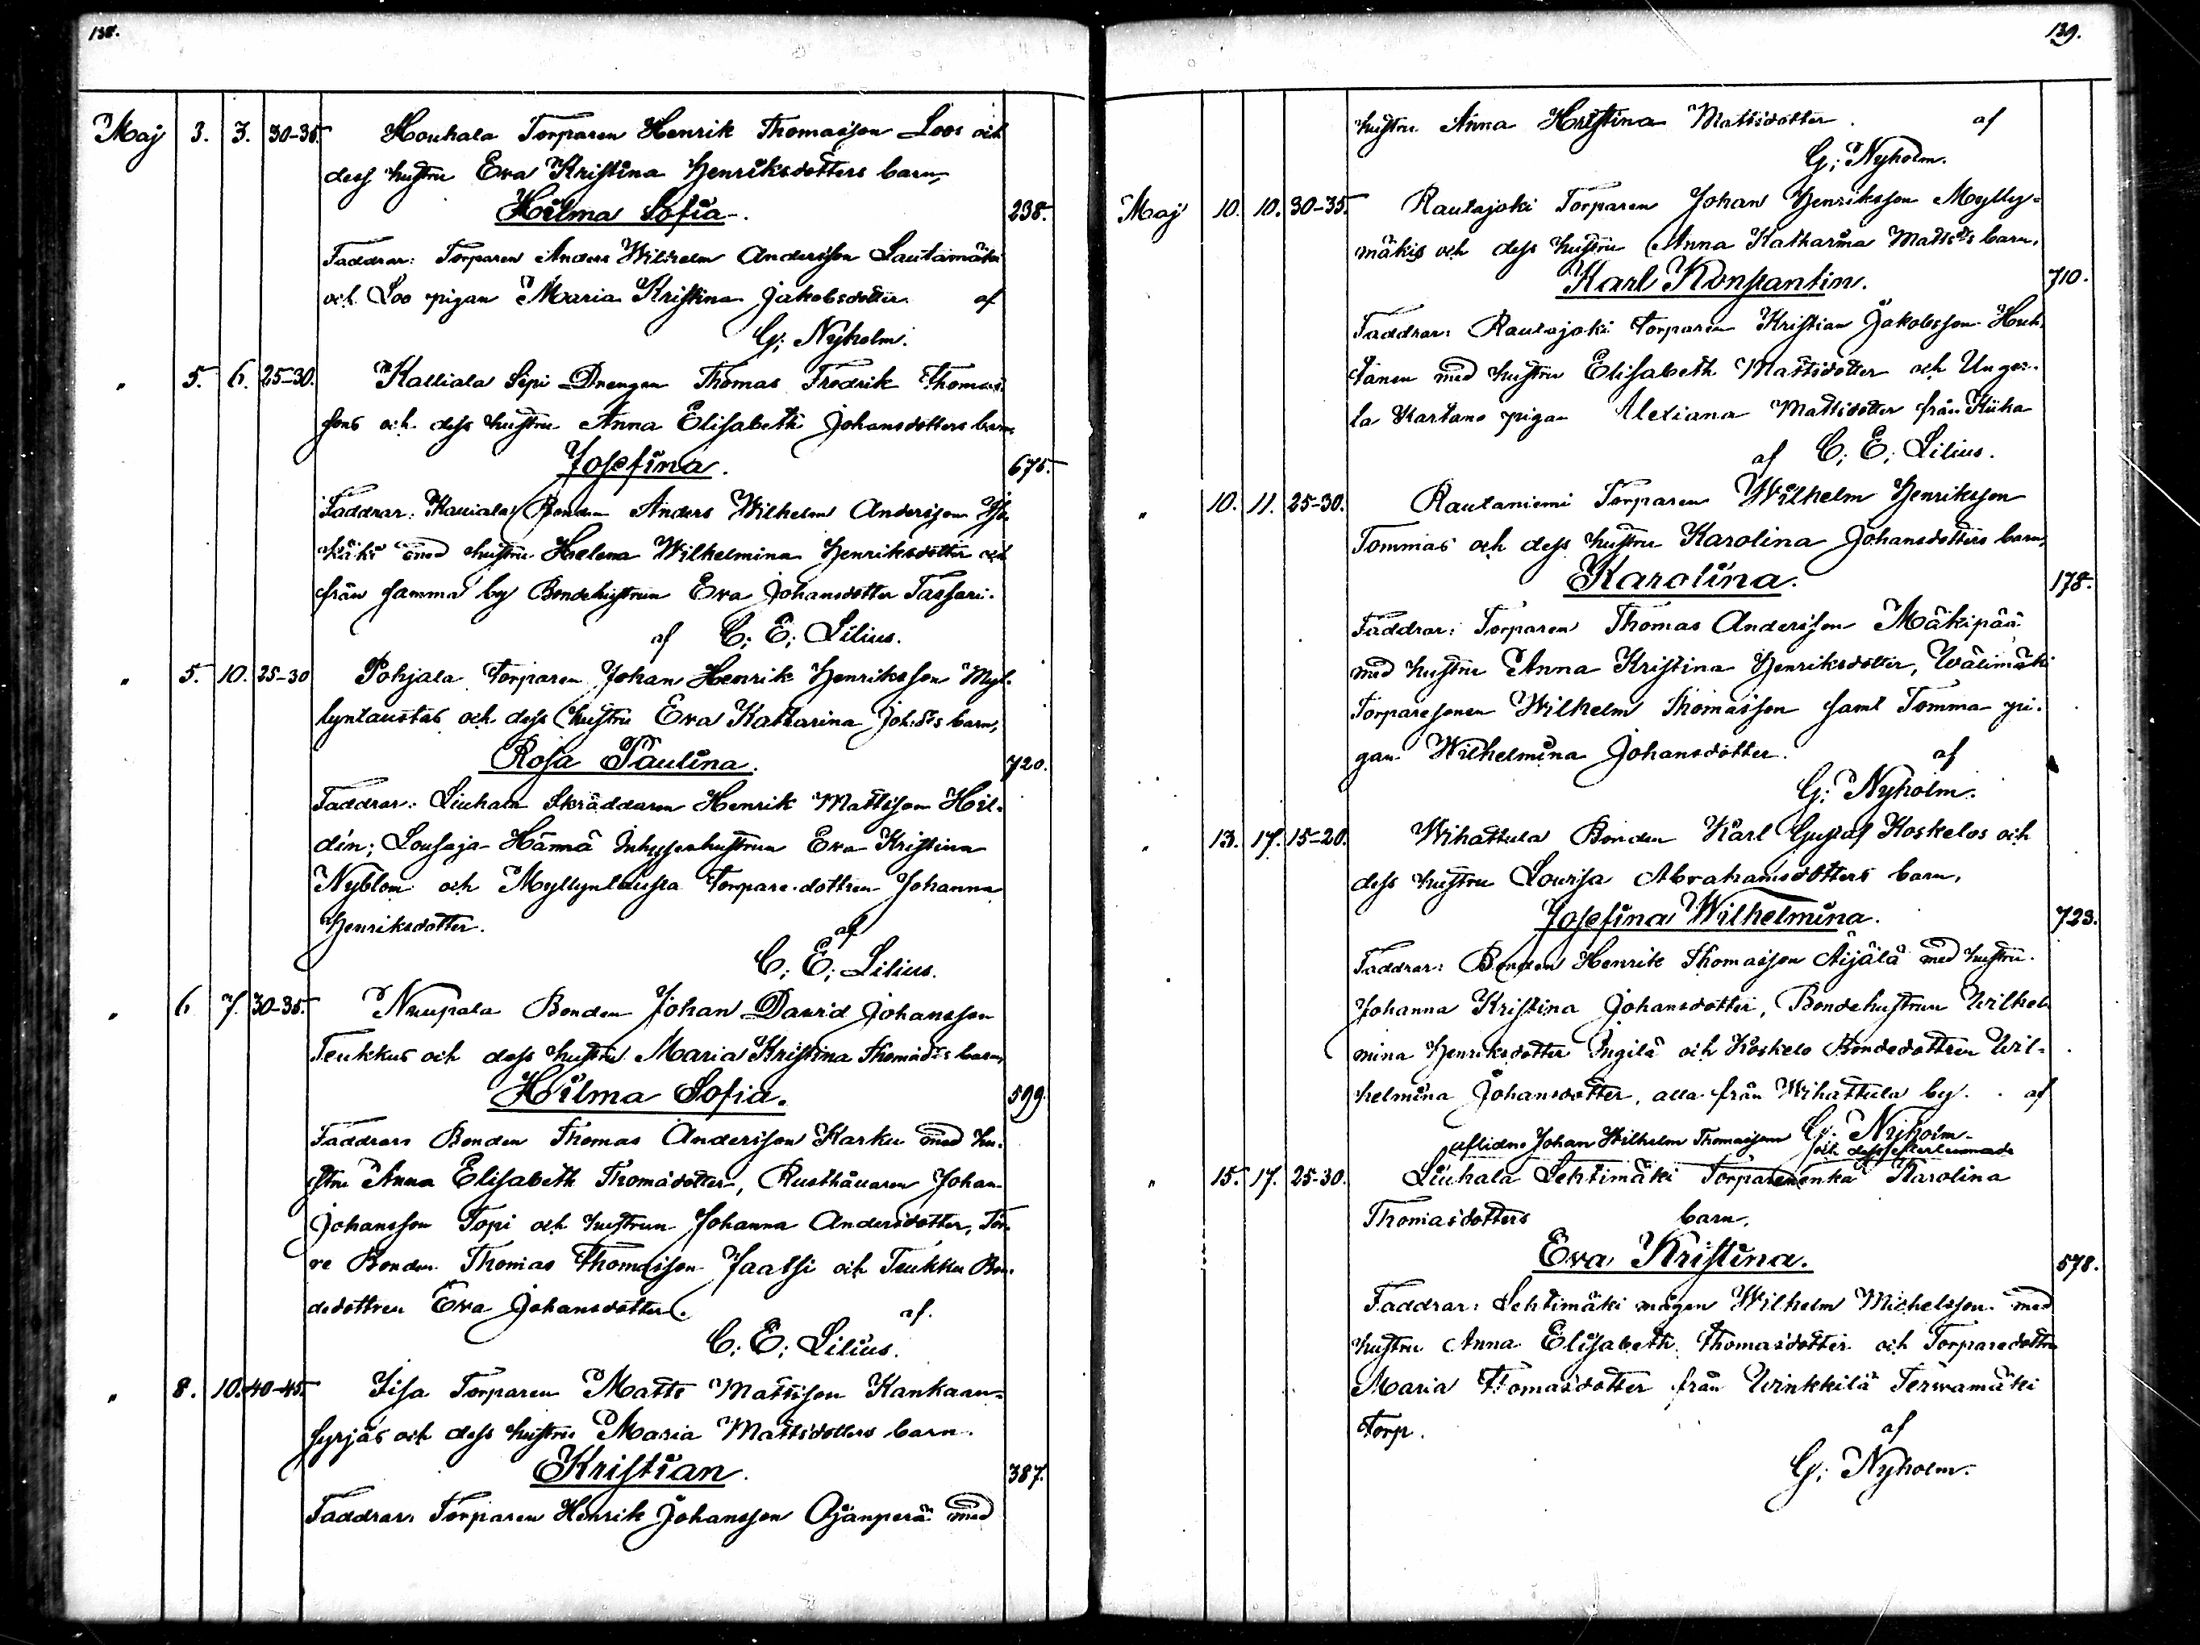 138.
Maj 3. 3. 30-35. Houhala Torparen Henrik Thomasson Loos och
dess hustru Eva Kristina Henriksdotters barn,
Hilma Sofia. 238.
Faddrar: Torparen Anders Wilhelm Andersson Sautamäki
och Loo pigan Maria Kristina Jakobsdotter af
G; Nyholm.
" 5. 6. 25-30. Kalliala Sipi Drengen Thomas Fredrik Thomas-
sons och dess hustru Anna Elisabeth Johansdotters barn
Josefina. 675.
Faddrar: Bonden Anders Wilhelm Andersson
med hustru Helena Wilhelmina Henriksdotter och
från samma by Bondehustrun Eva Johansdotter Tassari.
af C; E; Lilius.
" 5. 10. 25-30 Pohjala torparen Johan Henrik Henriksson Myl-
lyntaustas och dess hustru Eva Katharina Joh:drs barn,
Rosa Paulina. 720.
Faddrar: Liuhala Skräddaren Henrik Mattsson Hil-
dén; Lousaja Hännä Inhyseshustrun Eva Kristina
Nyblom och Myllyntausta torpare-dottren Johanna
Henriksdotter. af
C; E; Lilius.
" 6. 7. 30-35. Nuupala Bonden Johan David Johansson
Teukkus och dess hustru Maria Kristina Thomasds barn,
Hilma Sofia. 599.
Faddrar: Bonden Thomas Andersson Karku med hu-
stru Anna Elisabeth Thomasdotter, Rusthållaren Johan
Johansson Topi och hustrun Johanna Andersdotter,
re Bonden Thomas Thomasson Jaatsi och Teukku Bon-
dedottren Eva Johansdotter. af.
C; E; Lilius.
" 8. 10. 40-45. Sisa Torparen Matts Mattsson Kankaan-
syrjäs och dess hustru Maria Mattsdotters barn.
Kristian. 387.
Faddrar: Torparen Henrik Johansson Ojänperä med
139.
hustru Anna Kristina Mattsdotter. af
G; Nyholm.
Maj 10. 10. 30-35. Rautajoki Torparen Johan Henriksson Mylly-
mäkis och dess hustru Anna Katharina Matsds barn,
Karl Konstantin. 710.
Faddrar: Rautajoki torparen Kristian Jakobsson Huh-
tanen med hustru Elisabeth Mattsdotter och Unger-
la Kartano pigan Alexiana Mattsdotter från Kiika
af C; E; Lilius.
" 10. 11. 25-30. Rautaniemi Torparen Wilhelm Henriksson
Tommas och dess hustru Karolina Johansdotters barn,
Karolina. 178.
Faddrar: Torparen Thomas Andersson Mäkipää
med hustru Anna Kristina Henriksdotter, Wälimäki
Torparesonen Wilhelm Thomasson samt Tomma pi-
gan Wilhelmina Johansdotter. af
G; Nyholm.
" 13. 17. 15-20. Wihattula Bonden Karl Gustaf Koskelos och
dess hustru Lovisa Abrahamsdotters barn,
Josefina Wilhelmina. 723.
Faddrar: Bonden Henrik Thomasson Äijälä med hustru
Johanna Kristina Johansdotter, Bondehustrun Wilhel-
mina Henriksdotter Ingilä och Koskelo Bondedottren Wil-
helmina Johansdotter, alla från Wihattula by. af
G; Nyholm.
aflidne Johan Wilhelm Thomasson och dess efterlemnade
" 15. 17. 25-30. Liuhala Lehtimäki Torparenenka Karolina
Thomasdotters barn,
Eva Kristina. 578.
Faddrar: Lehtimäki mågen Wilhelm Michelsson med
hustru Anna Elisabeth Thomasdotter och Torparedottren
Maria Thomasdotter från Winkkilä Terwamäki
torp. af
G; Nyholm.